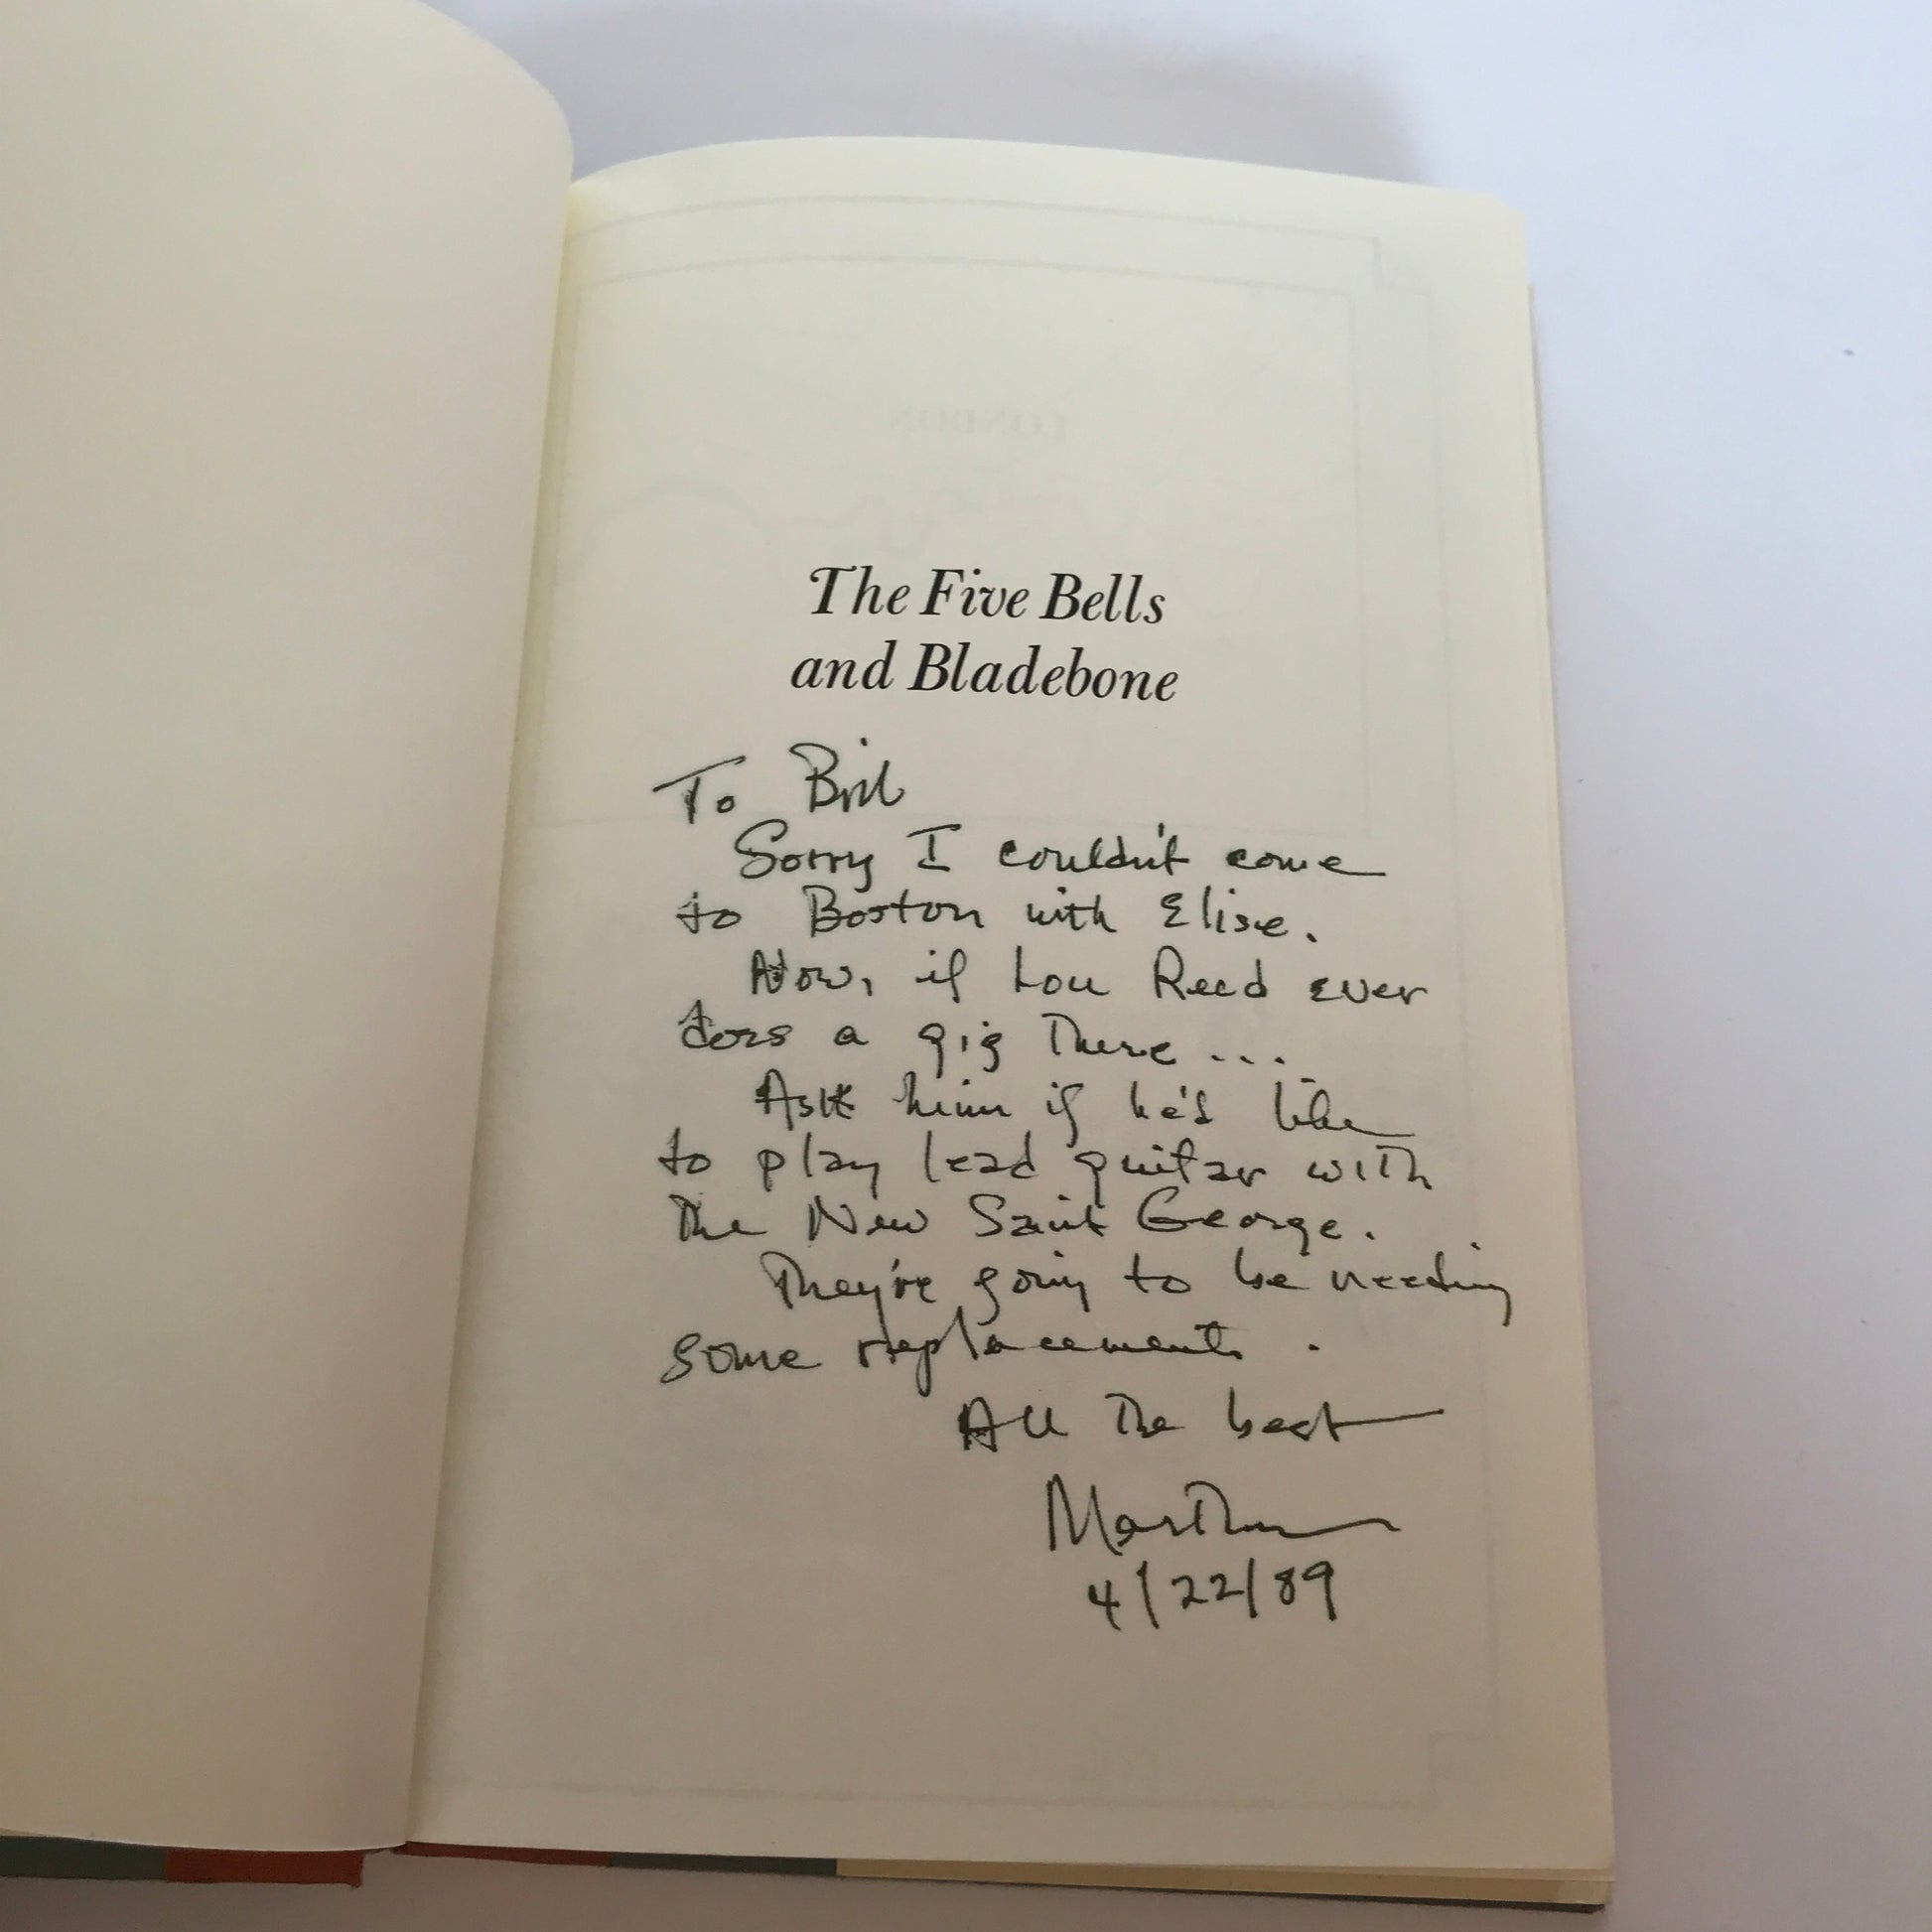 LONDON
The Five Bells
and Bladebone
To Bill
Sorry I couldn't come
to Boston with Elise.
Now, if Lou Reed ever
does a gig there ...
Ask him if he'd like
to play lead guitar with
the New Saint George.
They're going to be needing
some replacements.
All the best
Martha
4/22/89